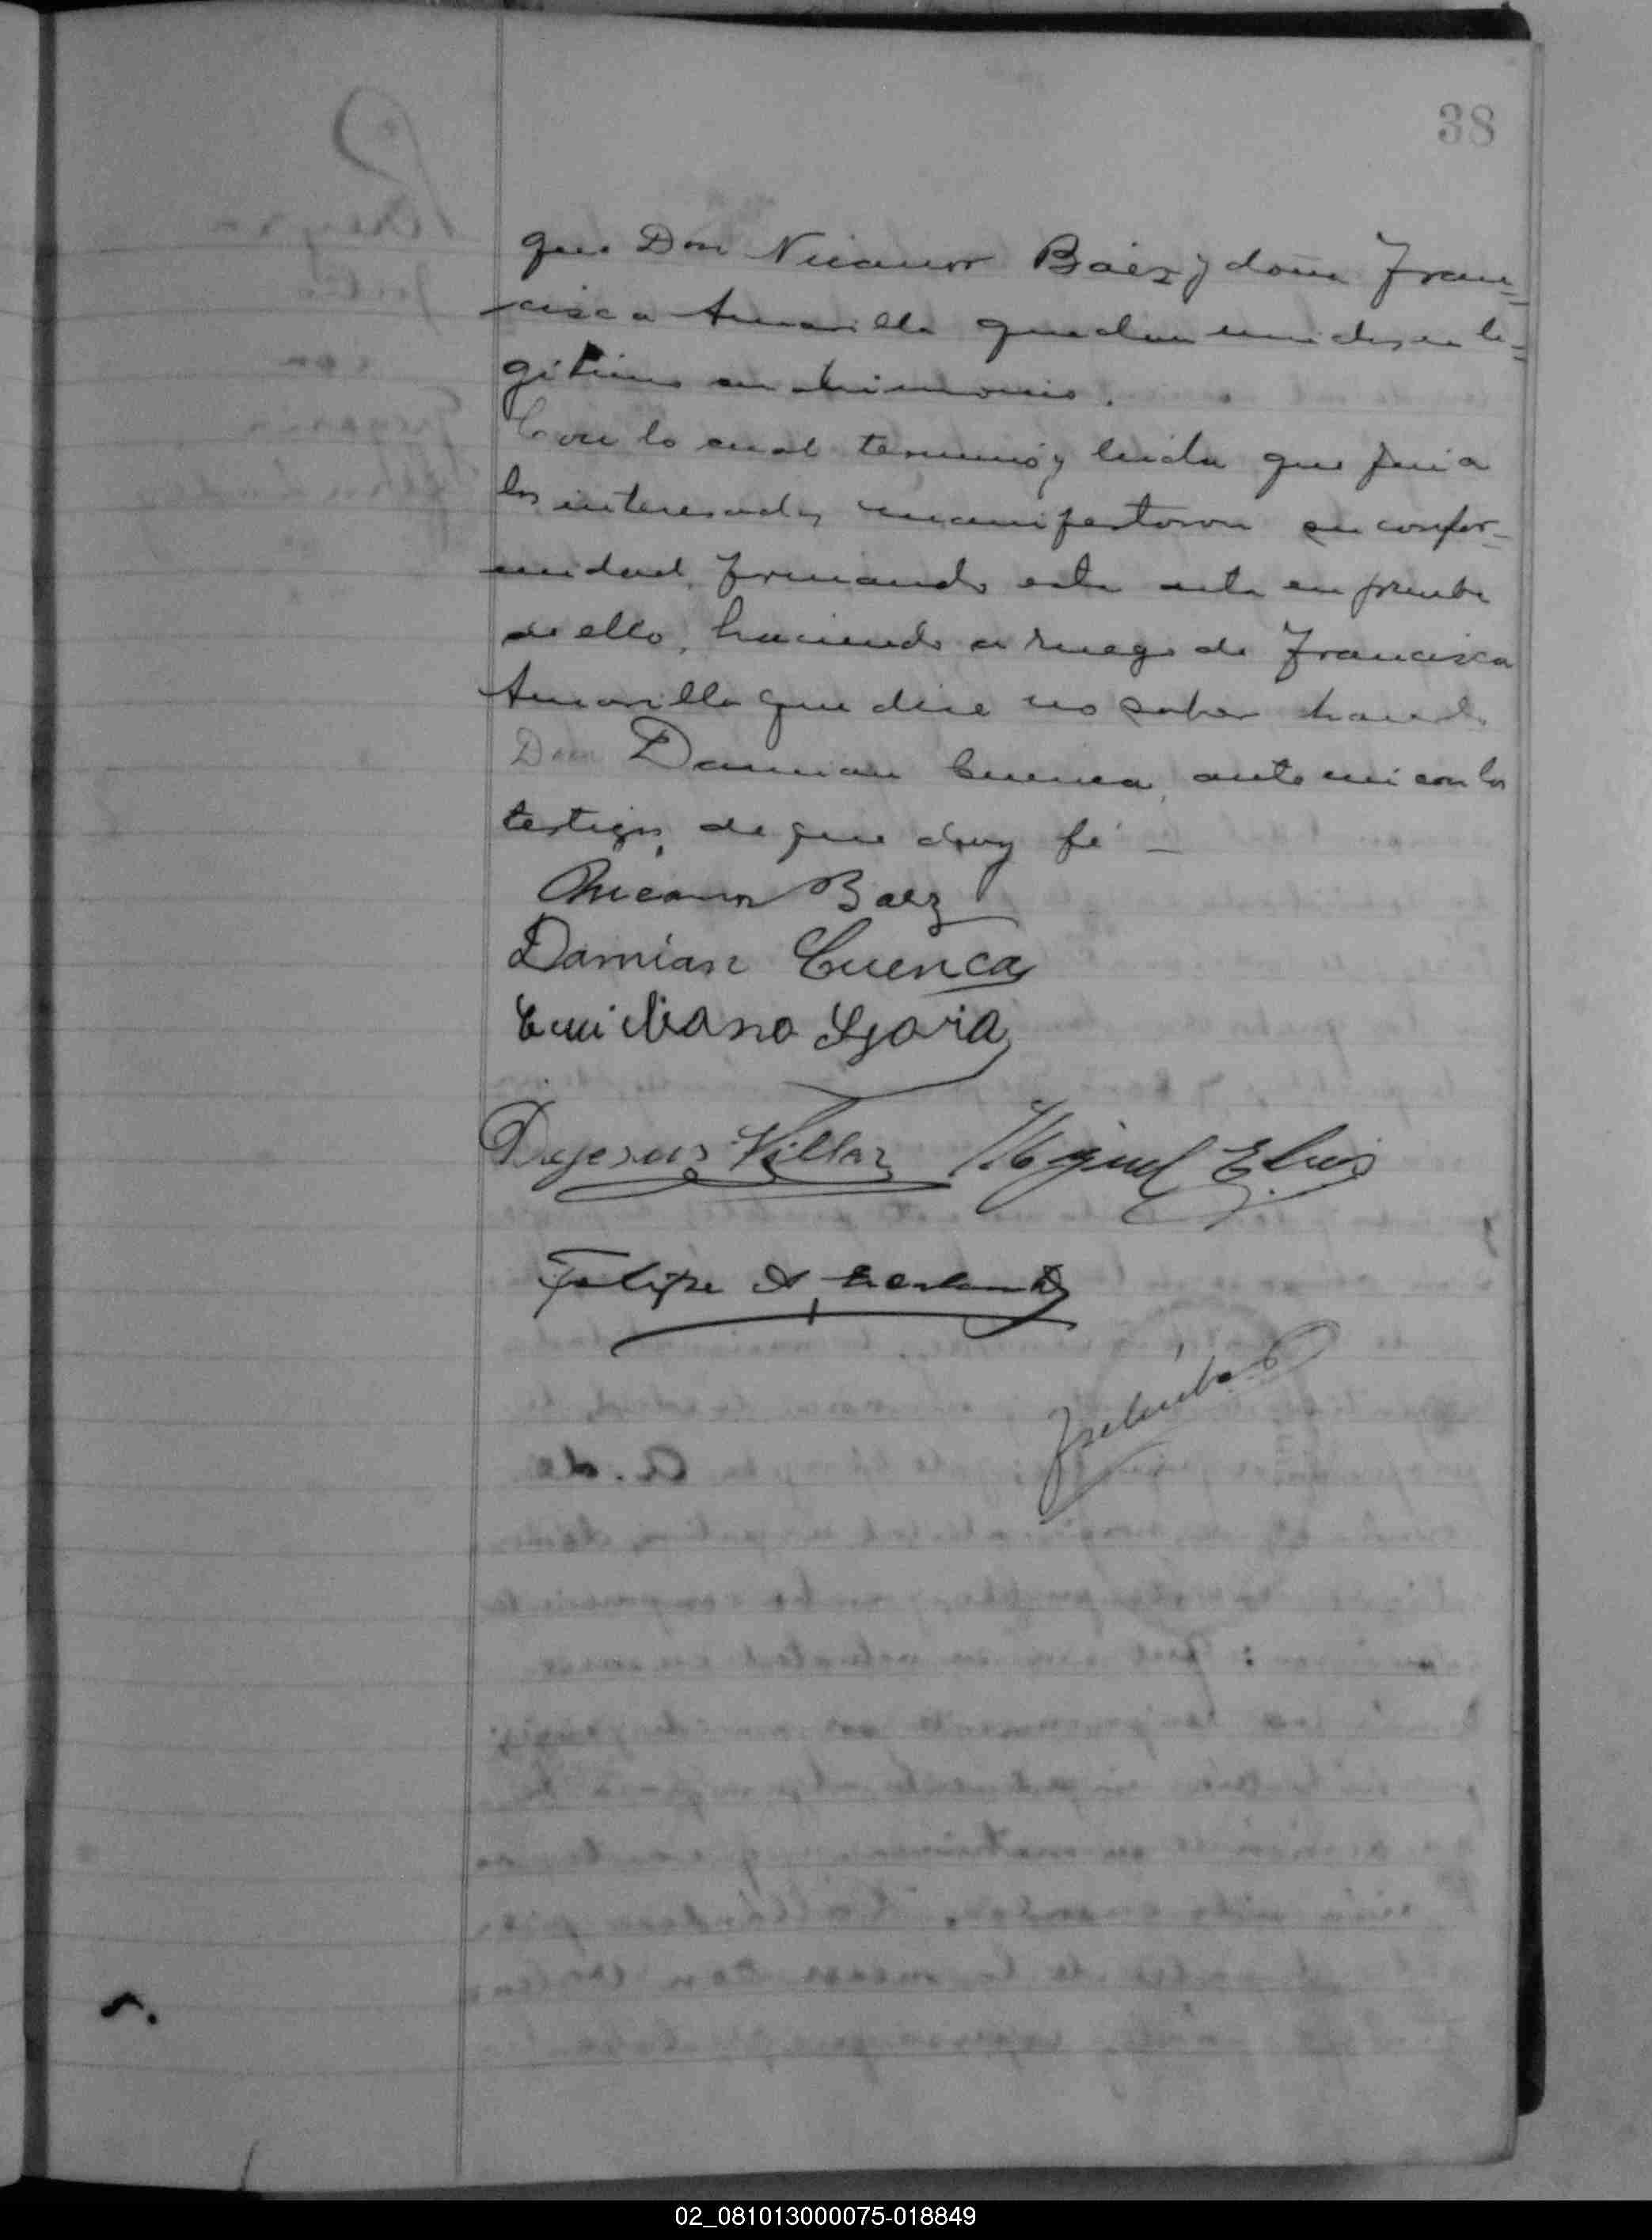 38
que Don Nicanor Báez y doña Fran=
cisca Amarilla quedan unidos en le=
gítimo matrimonio.
Con lo cual terminó y leida que fué a
los interesados manifestaron su confor-
midad, firmando esta acta en prueba
de ello, haciendo a ruego de Francisca
Amarilla que dice no saber hacerlo
Don Damian Cuenca, ante mi con los
testigos, de que doy fé —
Nicanor Baez
Damian Cuenca
Emiliano
Dejesus Villar Miguel
Felipe A
02_081013000075-018849